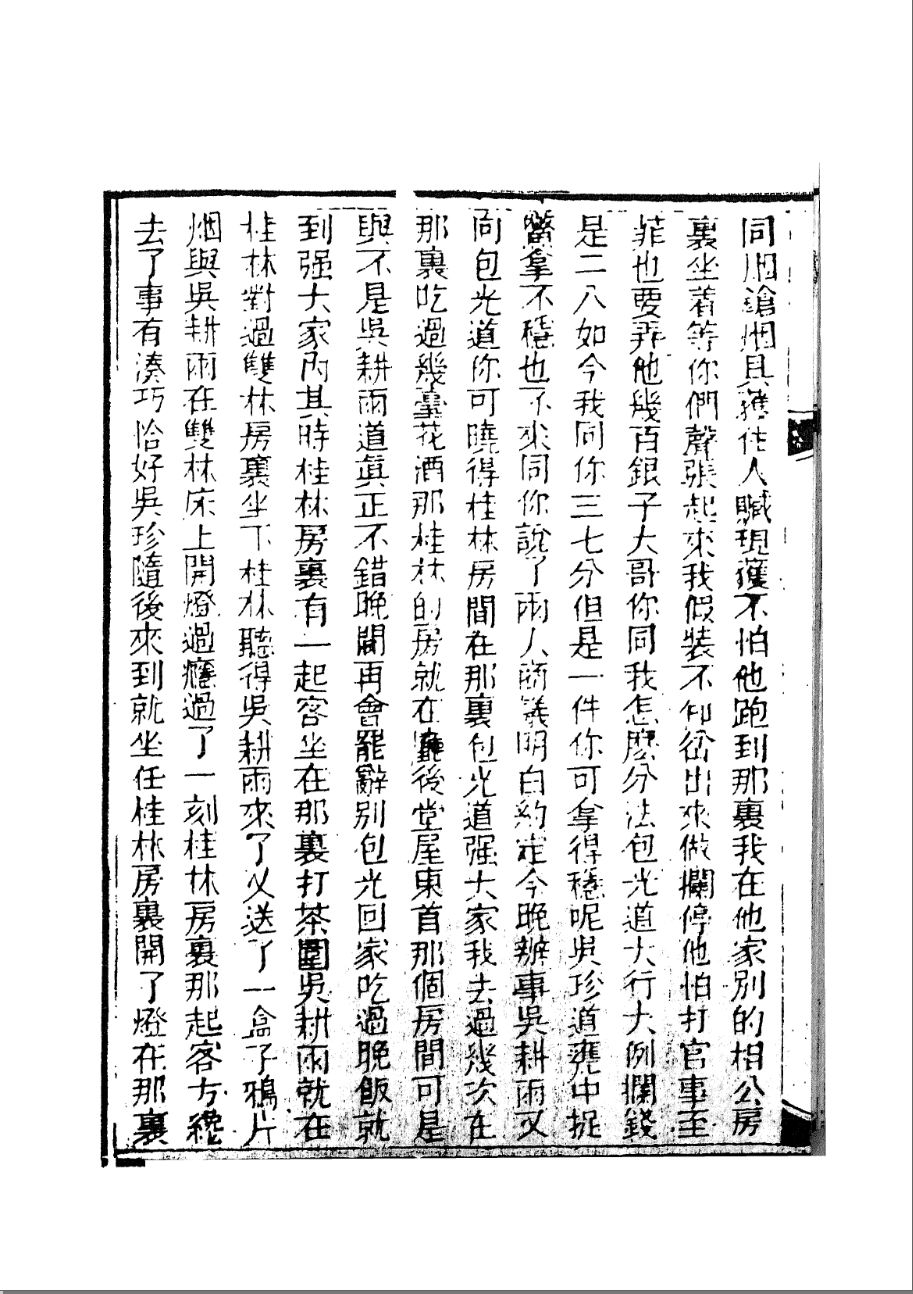 同烟鎗烟具獲住人贓現獲不怕他跑到那裏我在他家別的相公房
裏坐着等你們聲張起來我假裝不知岔出來做攔停他怕打官事至
菲也要弄他幾百銀子大哥你同我怎麽分法包光道大行大例攔錢
是二八如今我同你三七分但是一件你可拿得穩呢吳珍道甕中捉
鱉拿不穩也不來同你說了兩人商議明白約定今晚辦事吳耕雨又
向包光道你可曉得桂林房間在那裏包光道强大家我去過幾次在
那裏吃過幾臺花酒那桂林的房就在廳後堂屋東首那個房間可是
與不是吳耕雨道眞正不錯晚間再會罷辭別包光回家吃過晚飯就
到强大家內其時桂林房裏有一起客坐在那裏打茶圍吳耕雨就在
桂林對過雙林房裏坐下桂林聽得吳耕雨來了又送了一盒子鴉片
烟與吳耕雨在雙林床上開燈過癮過了一刻桂林房裏那起客方纔
去了事有湊巧恰好吳珍隨後來到就坐在桂林房裏開了燈在那裏